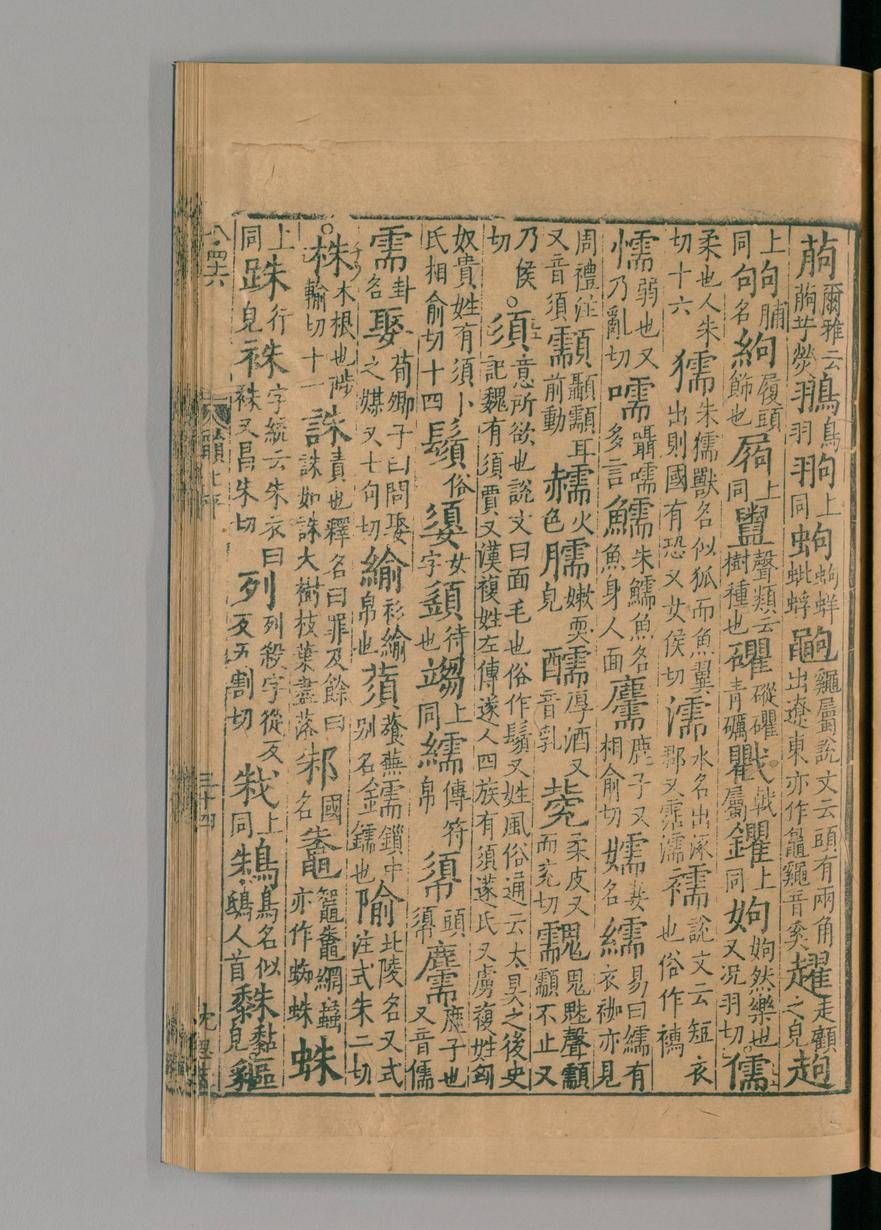 蒟爾雅云蒟芋熒翑羽鴝鳥鼩上同蚼蚼蛘蚍蜉鼅龜屬說文云頭有兩角出遼東亦作鼅龜音奚趯走顧之皃趜
上同朐脯名絇履頭飾也屩上同豎聲類云樹種也礭礭礭青礪戵戟屬鑺上同姁姁然樂也又況羽切儒
柔也人朱切十六獳朱獳獸名似狐而魚翼出則國有恐又女侯切濡水名出涿郡又霑濡襦說文云短衣也俗作褠
懦弱也又乃亂切嚅囁嚅多言鱬朱鱬魚名魚身人面麢鹿子又相俞切嬬妻名繻易曰繻有衣袽亦見
周禮注又音須顬顳顬耳前動燸火色臑嫩耎皃醹厚酒又音乳㼱柔皮又而兖切䰰鬼鬽聲䰰䰰不止又
乃侯切○須意所欲也說文曰面毛也俗作鬚又姓風俗通云太昊之後史記魏有須賈又漢複姓左傳遂人四族有須遂氏又虜複姓匈
奴貴姓有須卜氏相俞切十四鬚俗嬃女字䇓待也䇓上同繻傳符帛帤頭帤麢麋子也又音儒
需卦名娶荀卿子曰閭娶之媒又七句切緰衫緰帛也蕦蕵蕪別名鑐鎖中金鑐也隃北陵名又式注式朱二切
○株木根也陟輸切十一誅責也釋名曰罪及餘曰誅如誅大樹枝葉盡落邾國名鼄鼅鼄網蟲亦作蜘蛛蛛
上同跦行皃袾字統云朱衣曰袾又昌朱切列列殺字從歹歹五割切㦵上同鴸鳥名似鴟人首䵹䵹䵵皃貙
八四六
廣韻上平
三十四